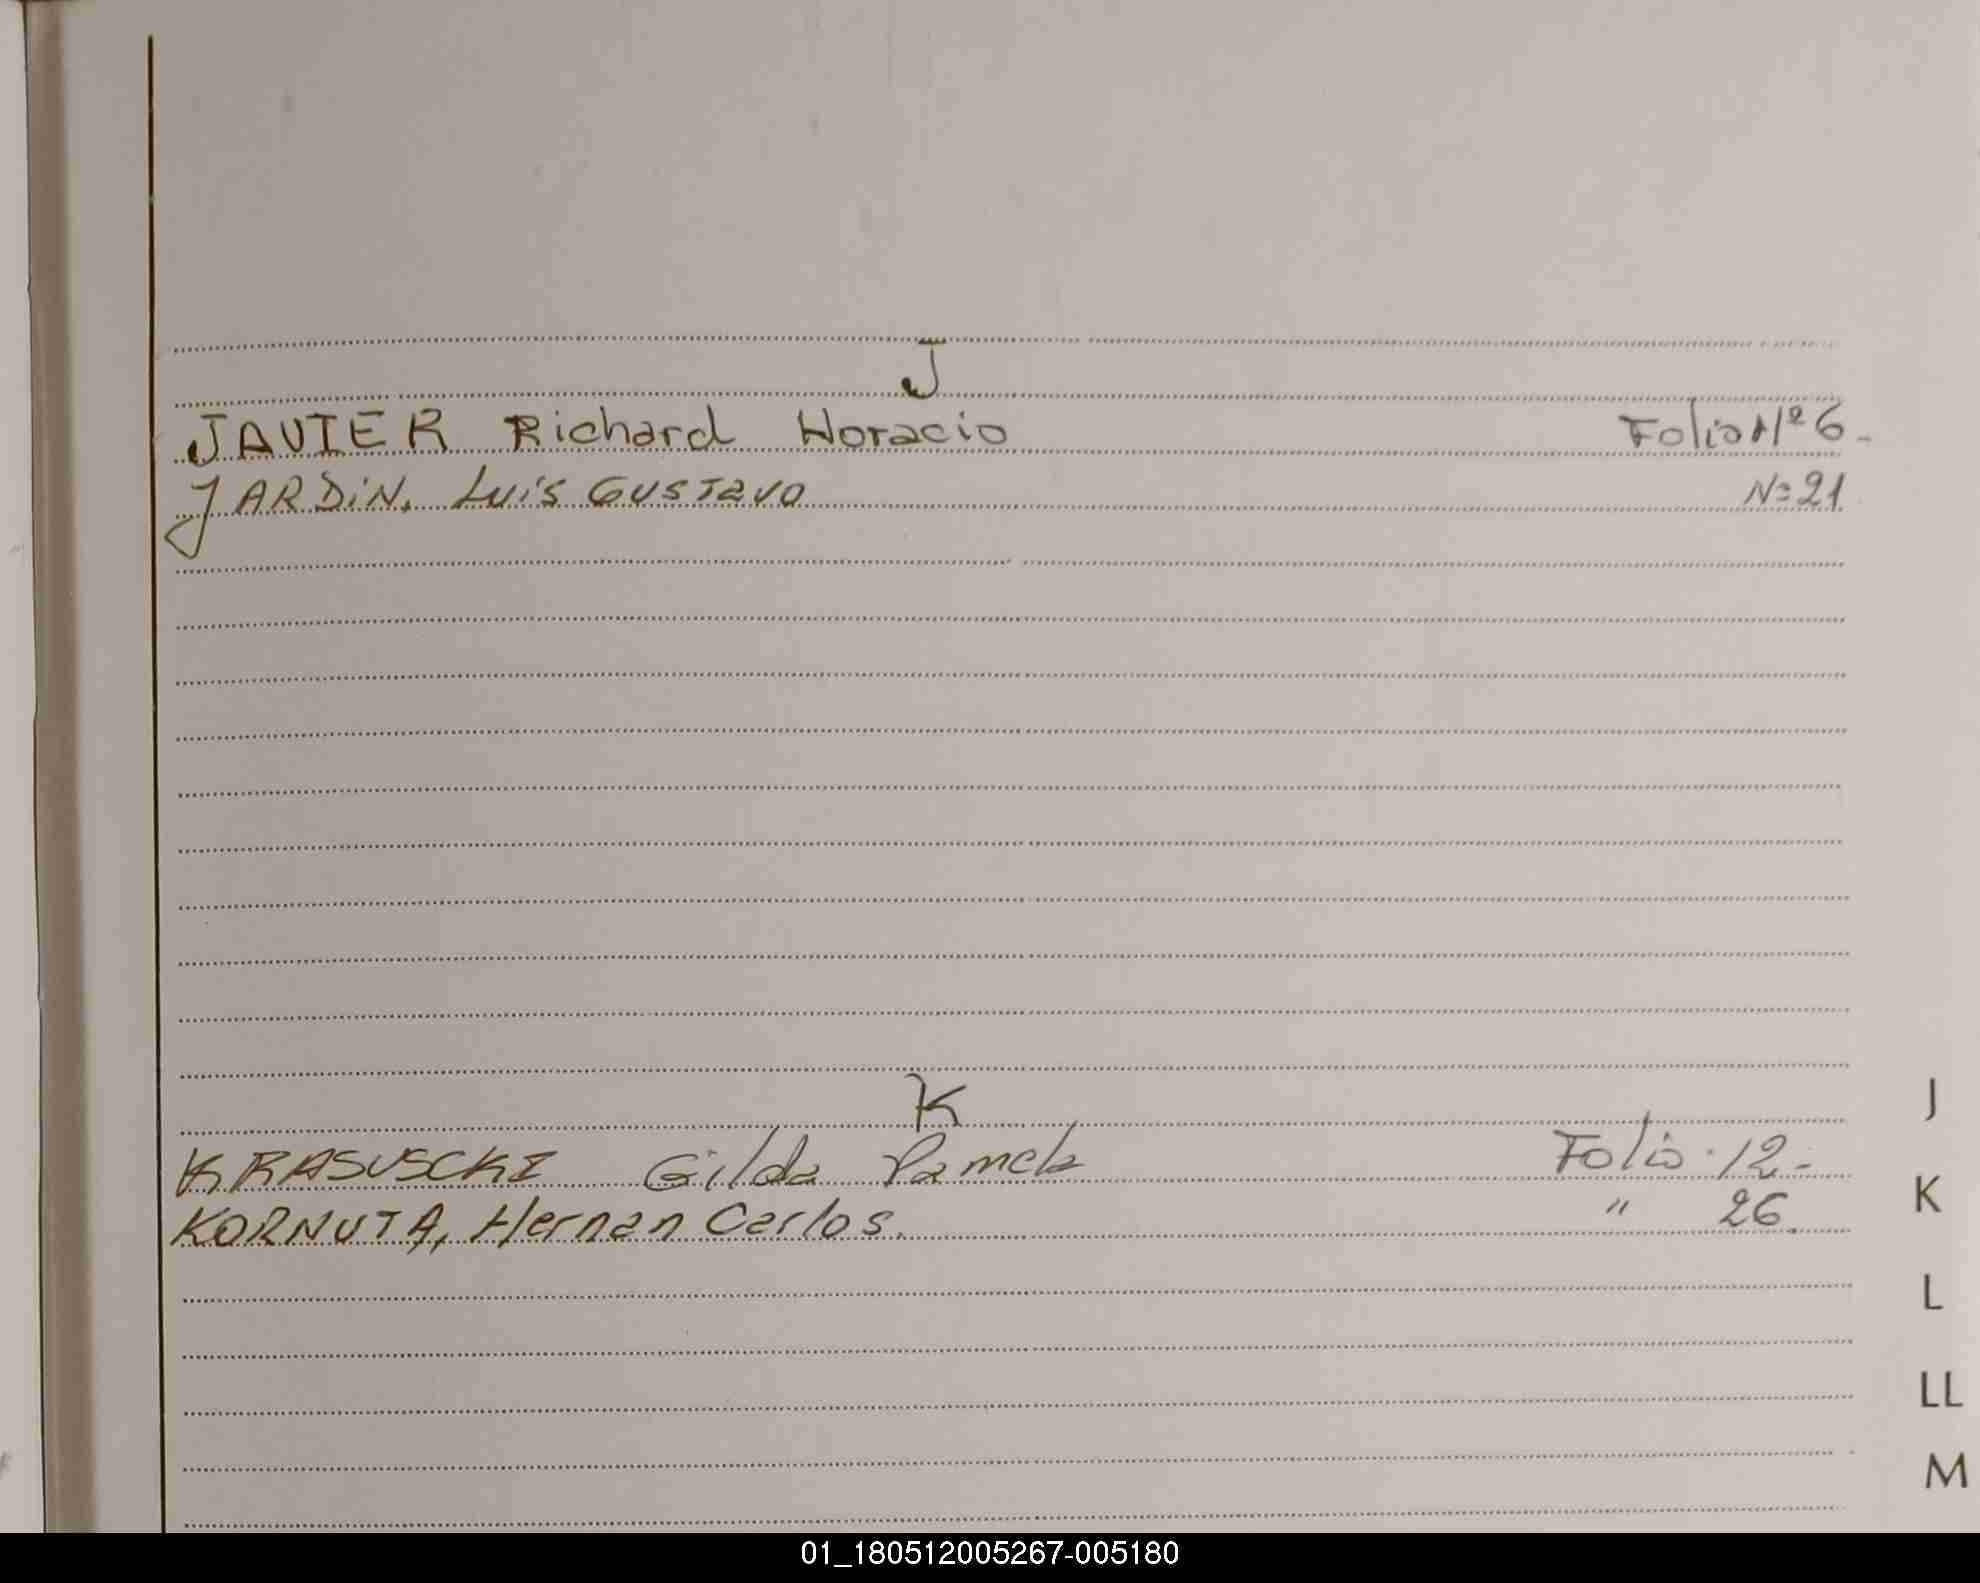 J
JAVIER Richard Horacio Folio Nº 6.
JARDIN, Luis Gustavo Nº 21
K
KRASUSCKI Gilda Pamela Folio 12.
KORNUTA, Hernan Carlos. " 26.
J
K
L
LL
M
01_180512005267-005180